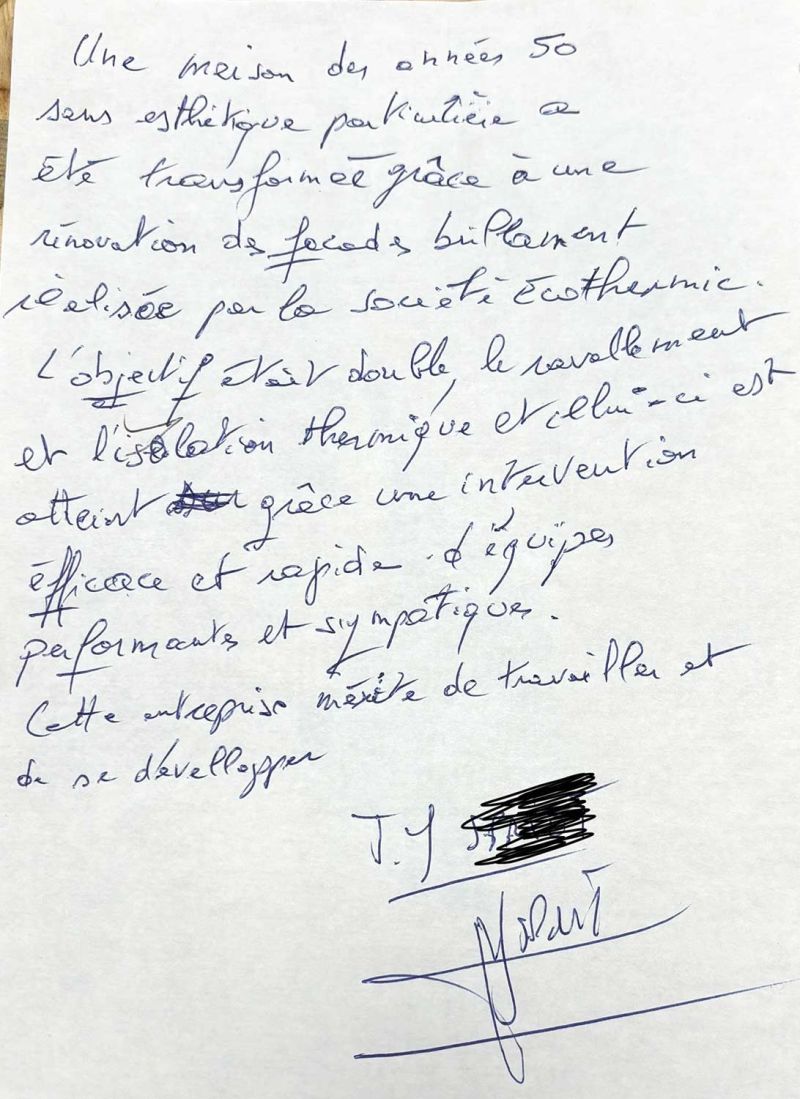 Une maison des années 50
sans esthétique particulière a
été transformée grâce à une
rénovation des façades brillament
réalisée par la société Écothermic.
L'objectif était double, le ravallement
et l'isolation thermique et cellui-ci est
atteint grâce une intervention
éfficace et rapide d'équipes
performants et sympatiques.
Cette entreprise mérite de travailler et
de se dévellopper
J.Y